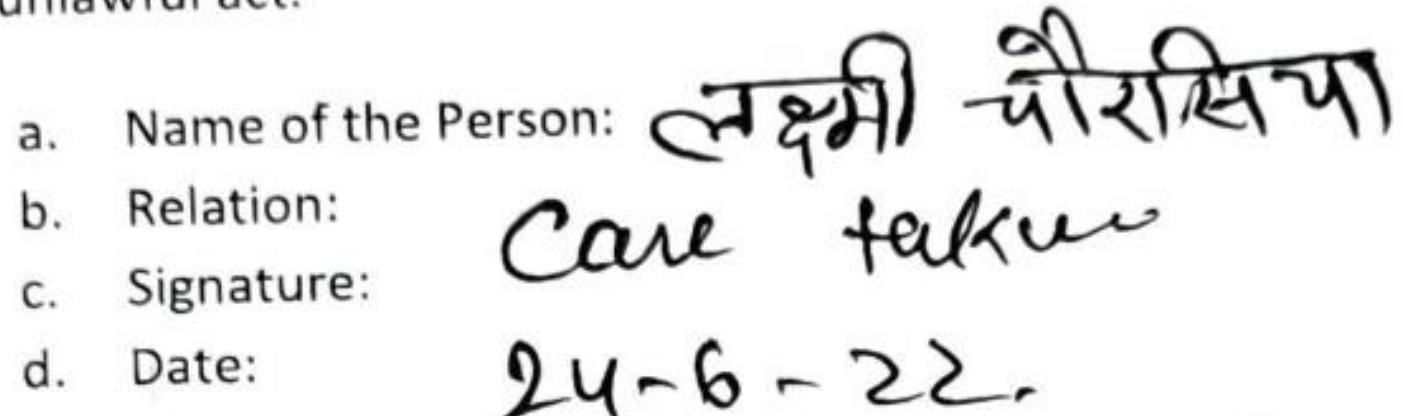 unlawful act.
a. Name of the Person: लक्ष्मी चौरसिया
b. Relation: Care taker
c. Signature:
d. Date: 24-6-22.